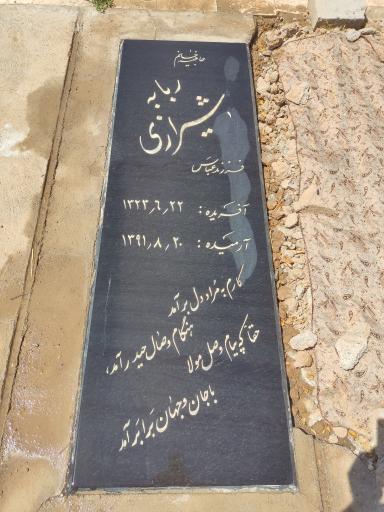 حاجیه خانم
ربابه
شیرازی
فرزند عباس
آفریده : ۱۳۲۳٫۶٫۲۲
آرمیده : ۱۳۹۱٫۸٫۲۰
کارم به مراد دل برآمد
هنگام وصال حیدر آمد،
حقا که پیام وصل مولا
با جان و جهان برابر آمد